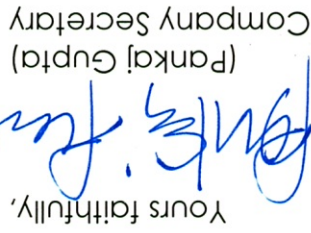 Yours faithfully,
(Pankaj Gupta)
Company Secretary